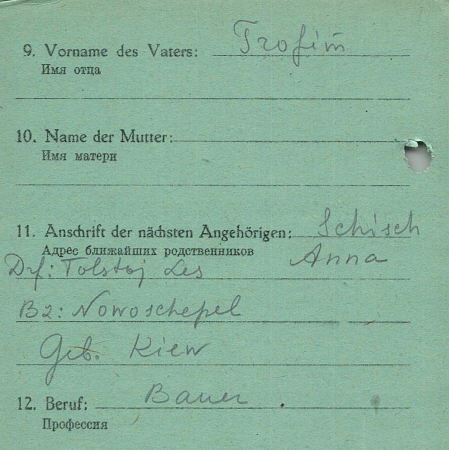 9. Vorname des Vaters: Trofim
Имя отца
10. Name der Mutter:
Имя матери
11. Anschrift der nächsten Angehörigen: Schisch
Адрес ближайших родственников Anna
Drf: Tolstoj Les
Bz: Nowoschepel
Geb. Kiew
12. Beruf: Bauer.
Профессия